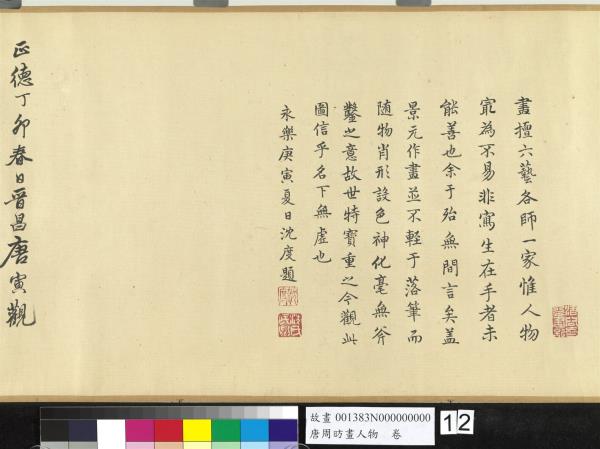 畫擅六藝各師一家惟人物
寂為不易非寫生在手者未
能善也余于殆無間言矣蓋
景元作畫並不輕于落筆而
隨物肖形設色神化毫無斧
鑿之意故世特寶重之今觀此
圖信乎名下無虛也
永樂庚寅夏日沈度題
正德丁卯春日晉昌唐寅觀
故畫 001383N000000000
唐周昉畫人物 卷
12